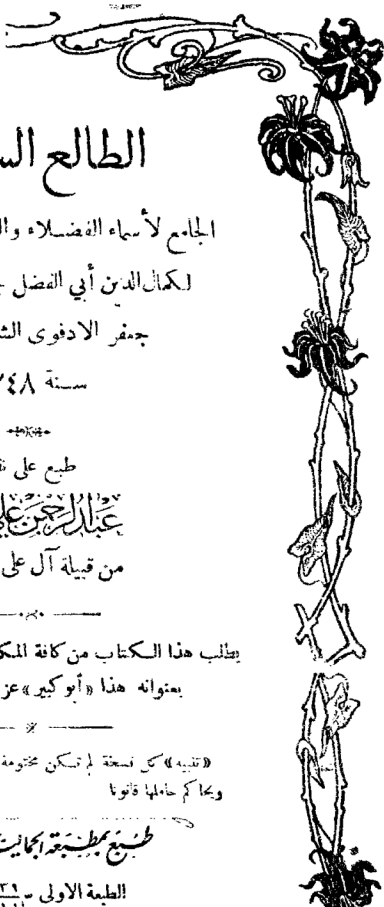 الطالع
الجامع لأسماء الفضلاء
لكمال الدين أبي الفضل
جعفر الادفوى
سنة
طبع على
عبد الرحمن على
من قبيلة آل على
يطلب هذا الكتاب من كافة
بعنوانه هذا «أبو كبير» عز
«تنبيه» كل نسخة لم تكن مختومة
ويحاكم حاملها قانونا
طبع بمطبعة
الطبعة الاولى